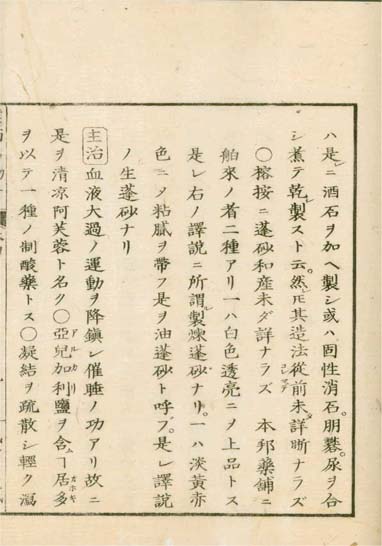 ハ是レニ酒石ヲ加ヘ製シ或ハ固性消石。朋礬。尿ヲ合
シ煮テ乾製スト云。然レ𪜈其造法從前未タ詳晰ナラズ
〇榕按ニ蓬砂和産未ダ詳ナラズ 本邦藥鋪ニ
舶來ノ者二種アリ一ハ白色透亮ニメ上品トス
是レ右ノ譯説ニ所謂製煉蓬砂ナリ。一ハ淡黄赤
色ニメ粘膩ヲ帶フ是ヲ油蓬砂ト呼フ。是レ譯説
ノ生蓬砂ナリ
主治 血液大過ノ運動ヲ降鎭シ催睡ノ功アリ故ニ
是ヲ清凉阿芙蓉ト名ク〇亞兒加利鹽ヲ含ムヿ居多
ヲ以テ一種ノ制酸藥トス〇凝結ヲ疏散シ輕ク瀉